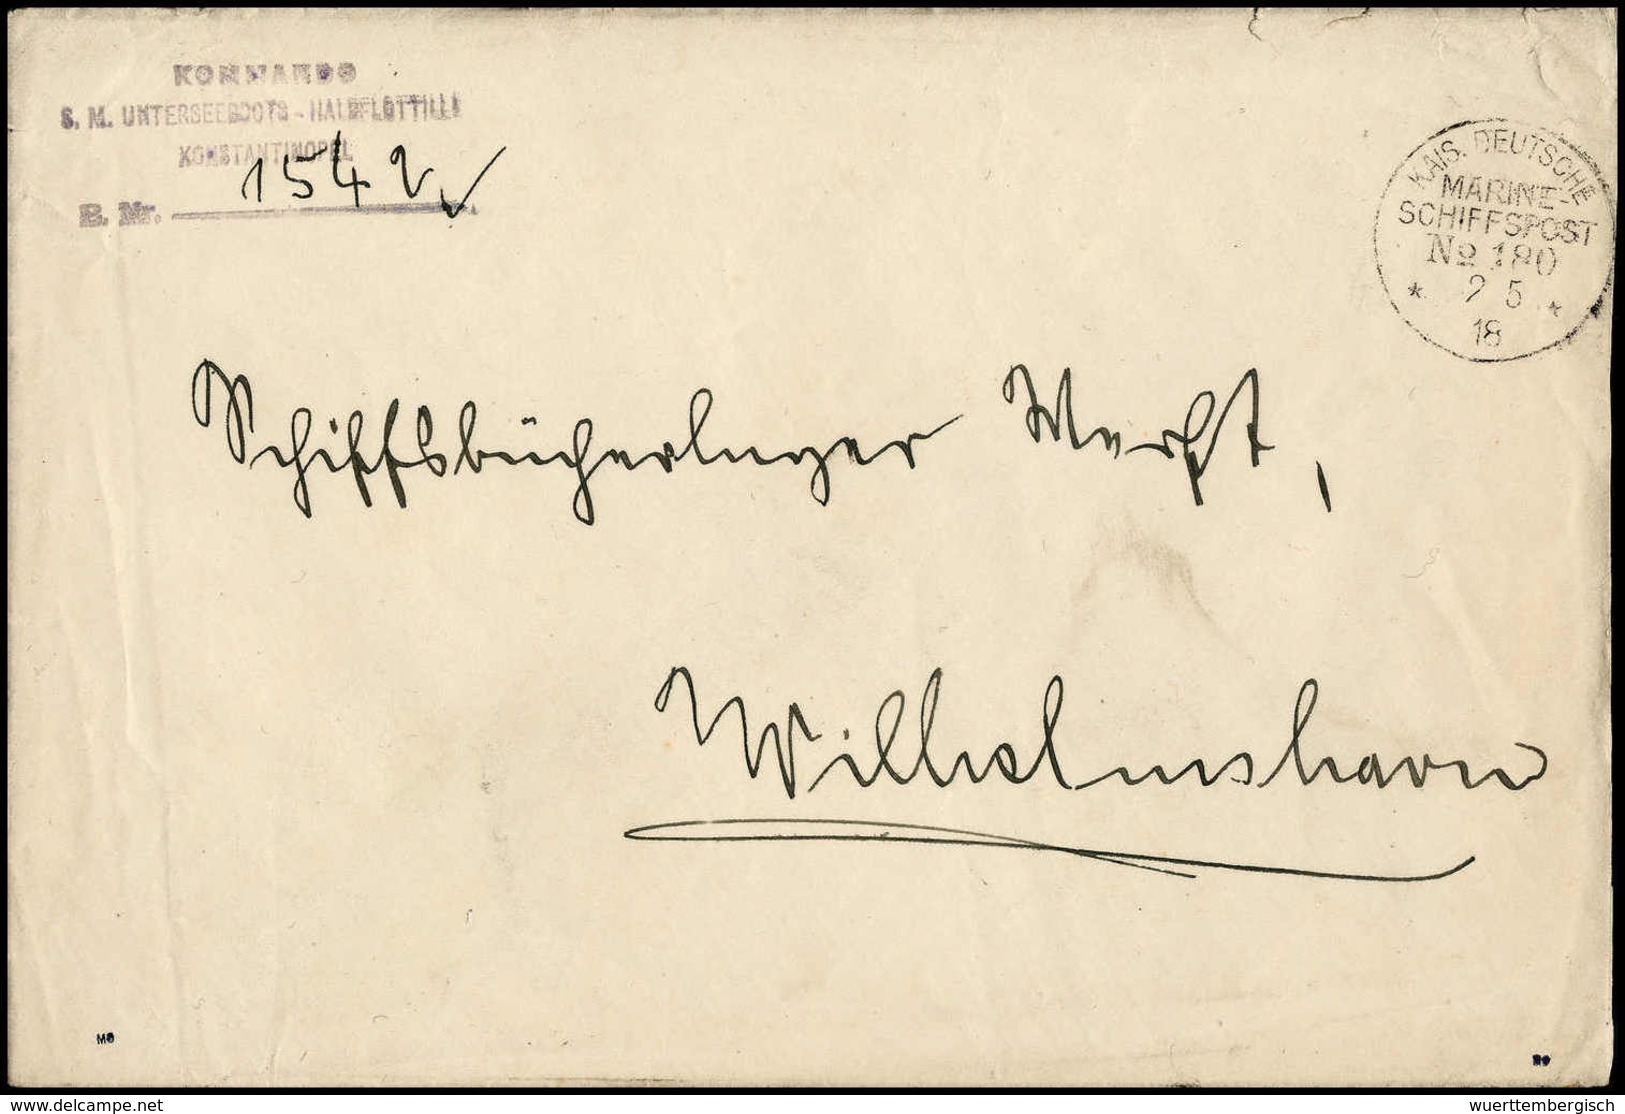 KOMMANDO
S. M. UNTERSEEBOOTS - HALBFLOTTILLE
KONSTANTINOPEL
B. Nr. 1542
KAIS. DEUTSCHE
MARINE-
SCHIFFSPOST
No 180
* 2 5 *
18
Schiffsbücherlager Werft,
Wilhelmshaven
MS
Delcampe.com
wuerttembergisch